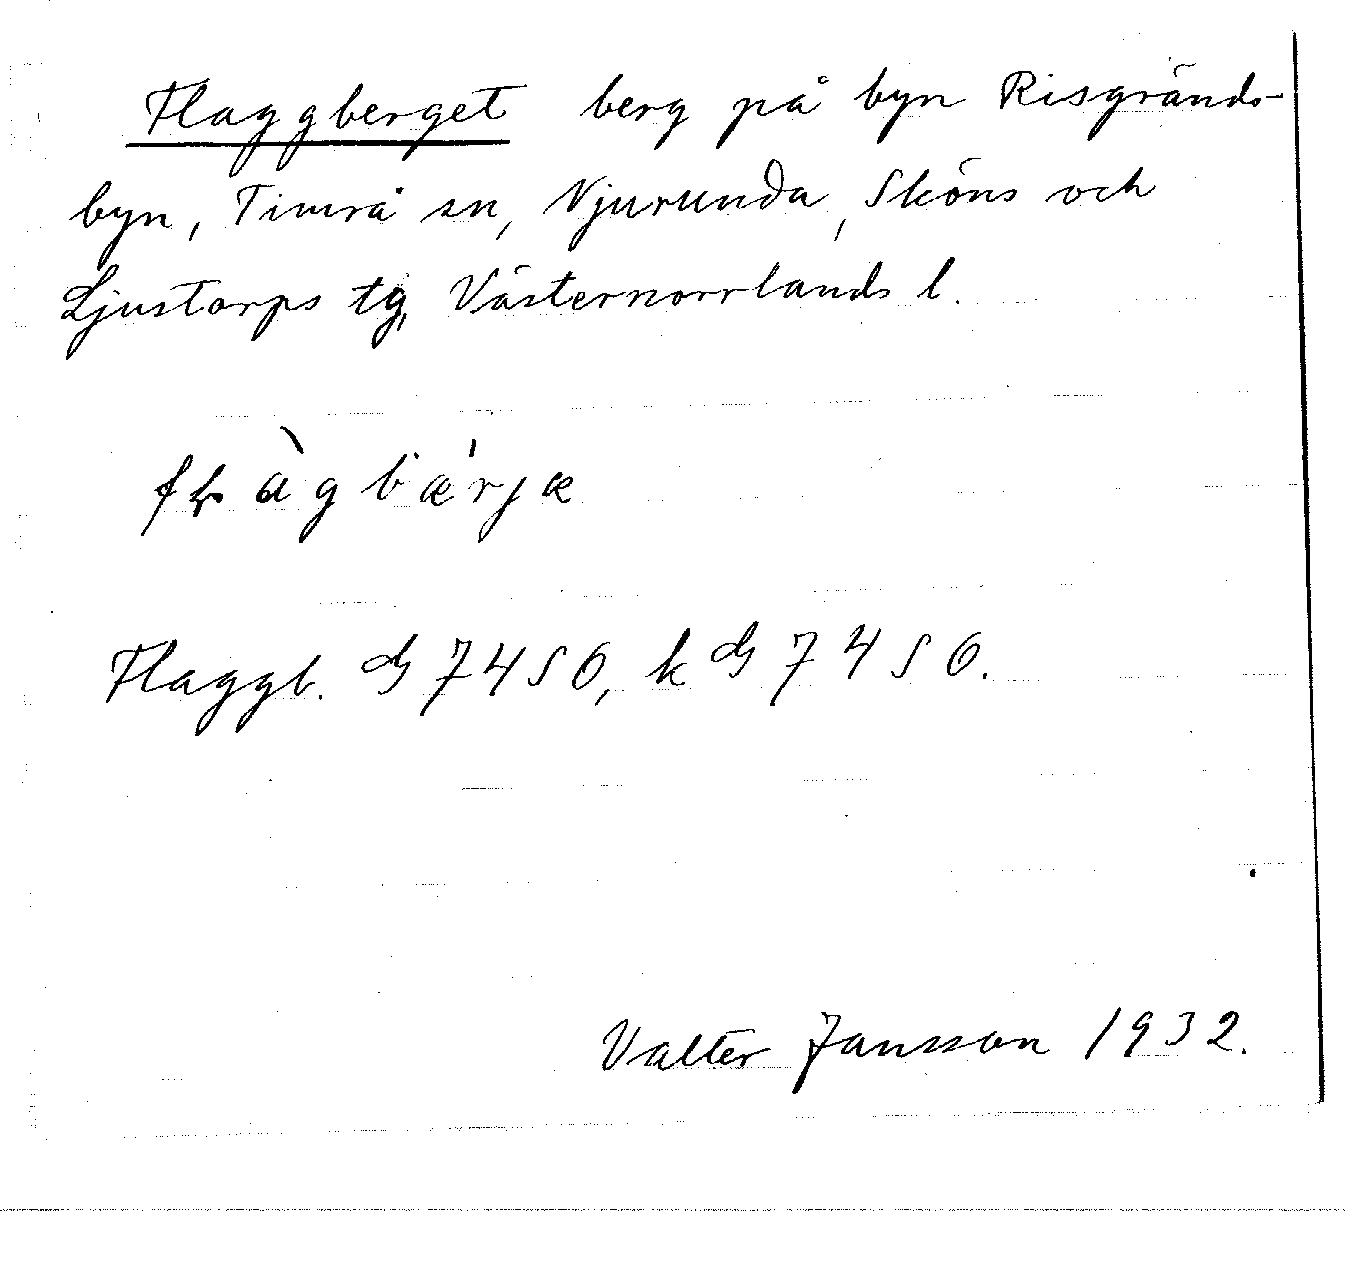 Flaggberget berg på byn Risgränds-
byn, Timrå sn, Njurunda, Sköns och
Ljustorps tg, Västernorrlands l.
Flaggb. 7450, k 7450.
Valter Jansson 1932.